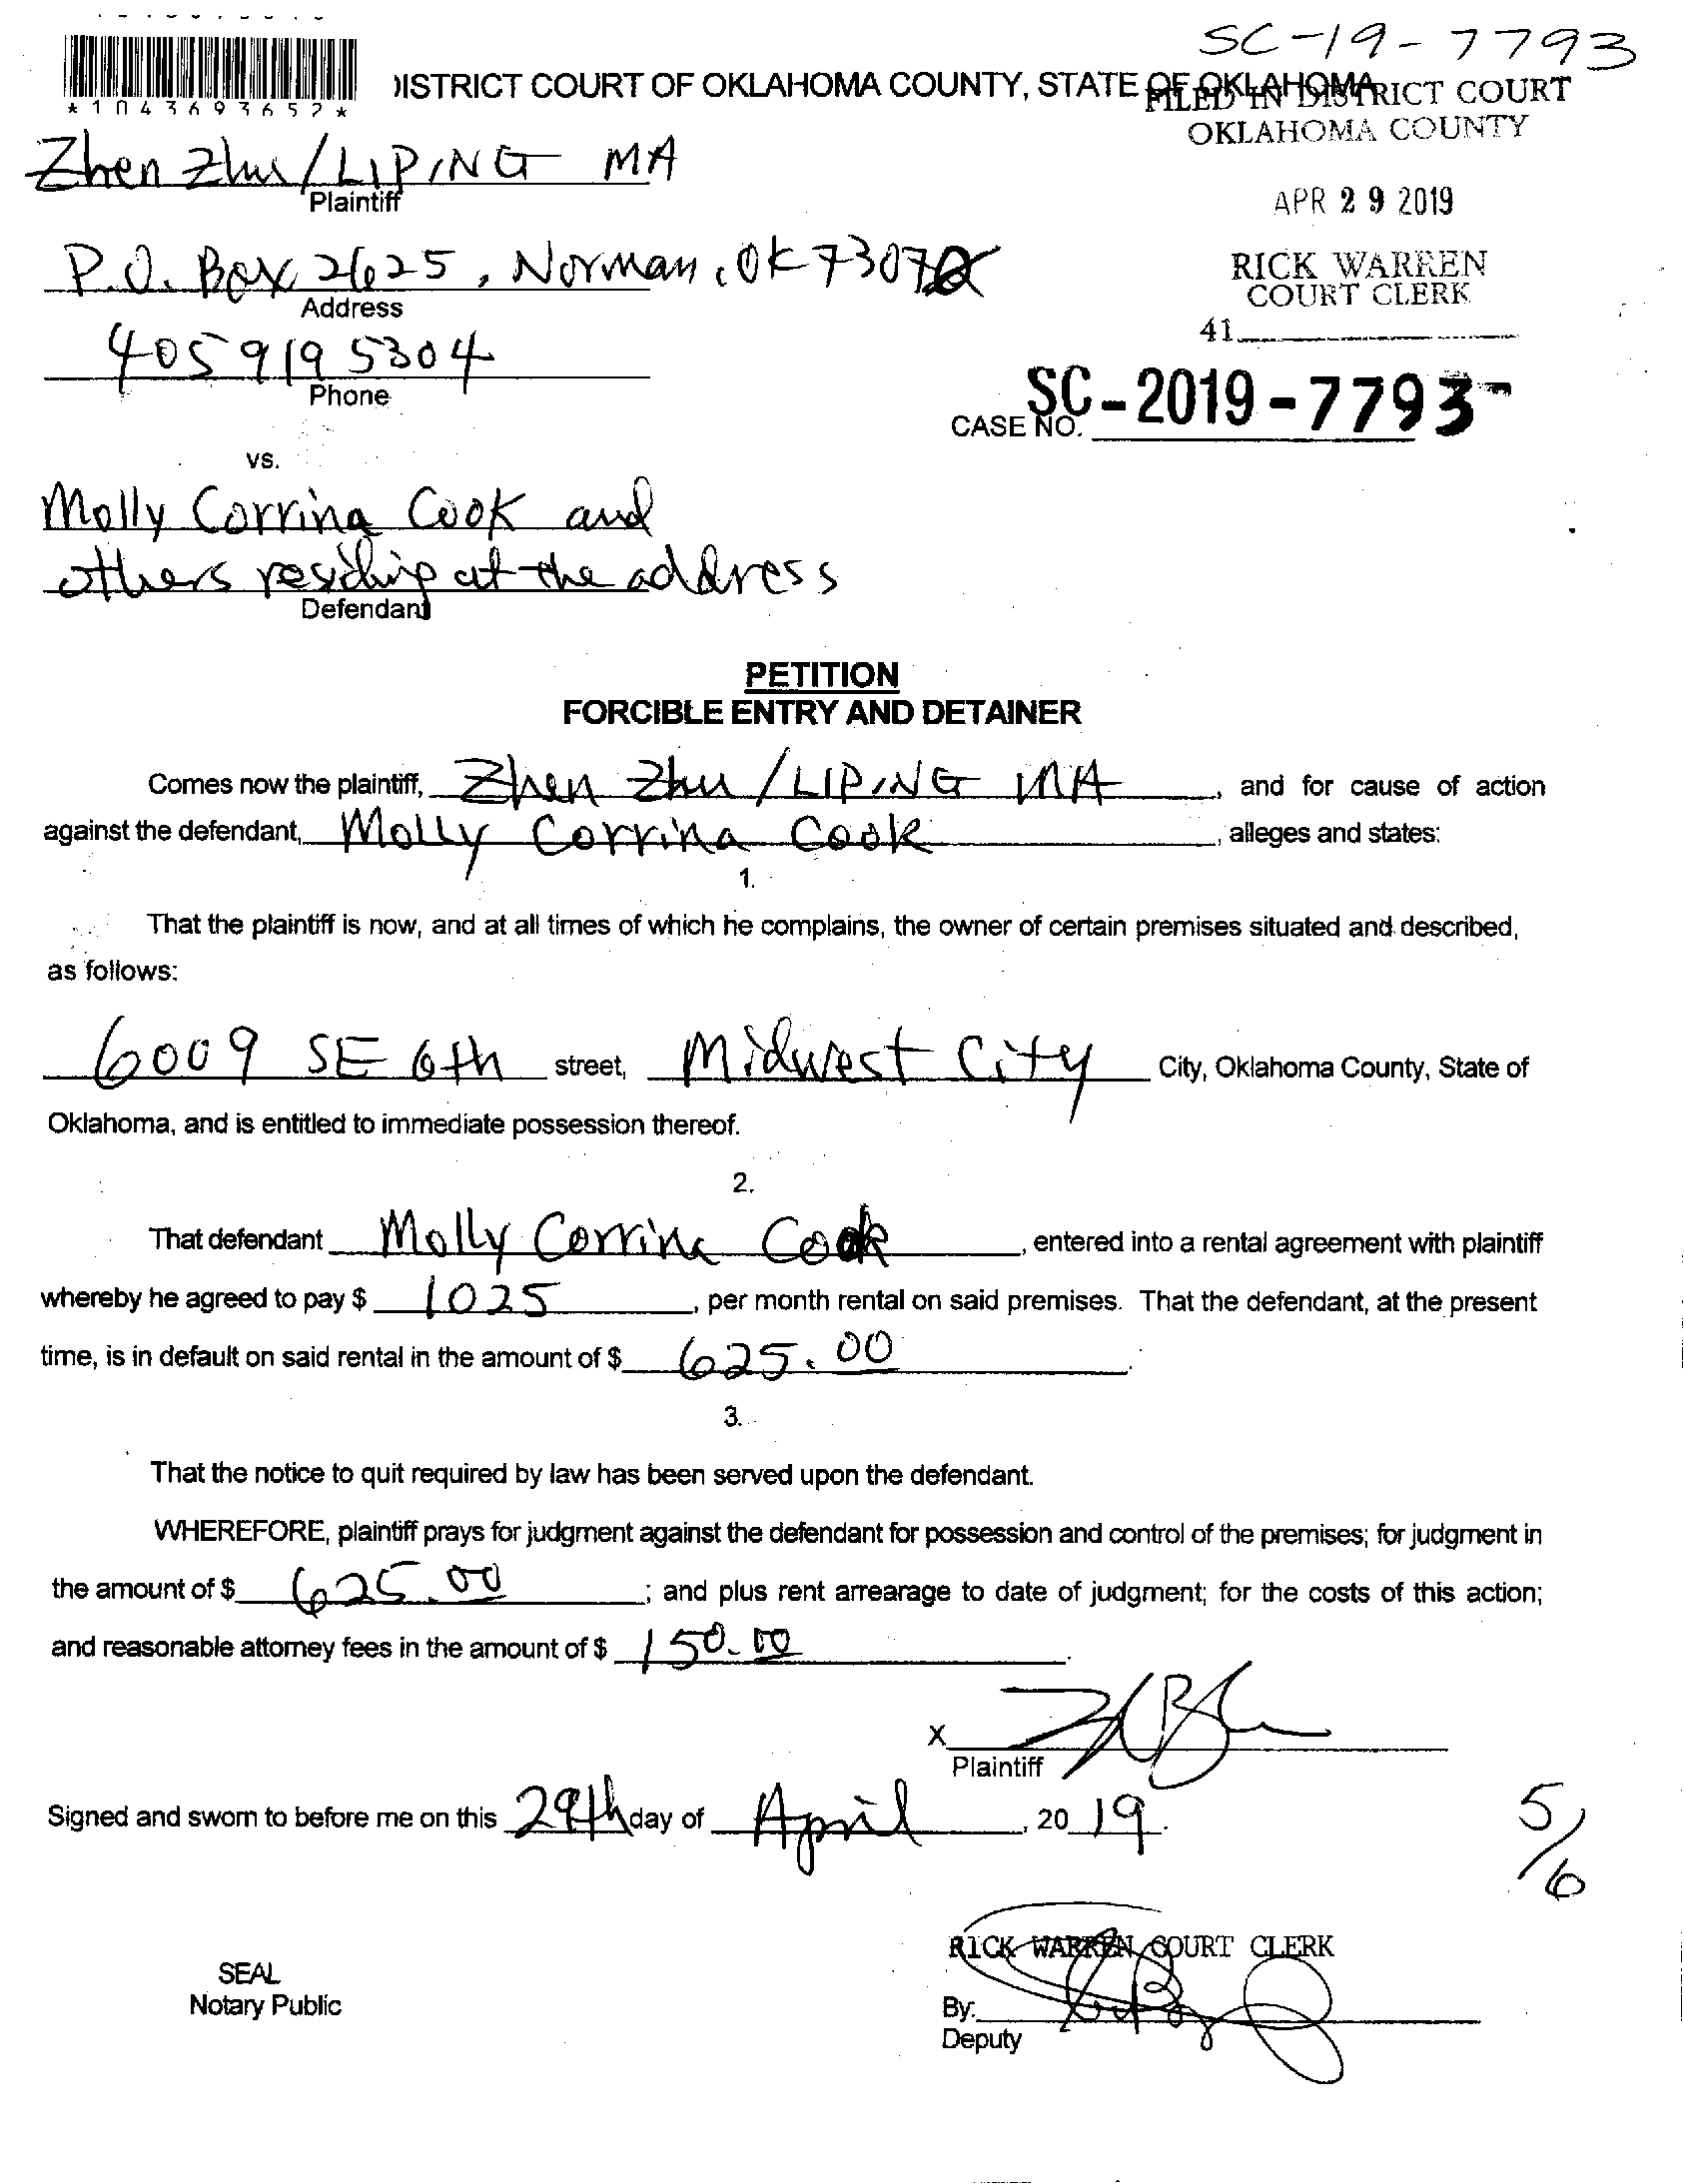 SC-19-7793
*1043693652*
DISTRICT COURT OF OKLAHOMA COUNTY, STATE OF OKLAHOMA
FILED IN DISTRICT COURT
OKLAHOMA COUNTY
Zhen Zhu/LIPING MA
Plaintiff
APR 29 2019
P.O. Box 2625, Norman, OK 7307
Address
RICK WARREN
COURT CLERK
41
405 919 5304
Phone
CASE NO. SC-2019-7793
vs.
Molly Corrina Cook and
others residing at the address
Defendant
PETITION
FORCIBLE ENTRY AND DETAINER
Comes now the plaintiff, Zhen Zhu /LIPING MA, and for cause of action
against the defendant, Molly Corrina Cook, alleges and states:
1.
That the plaintiff is now, and at all times of which he complains, the owner of certain premises situated and described,
as follows:
6009 SE 6th street, Midwest City City, Oklahoma County, State of
Oklahoma, and is entitled to immediate possession thereof.
2.
That defendant Molly Corrina Cook, entered into a rental agreement with plaintiff
whereby he agreed to pay $ 1025, per month rental on said premises. That the defendant, at the present
time, is in default on said rental in the amount of $ 625.00.
3.
That the notice to quit required by law has been served upon the defendant.
WHEREFORE, plaintiff prays for judgment against the defendant for possession and control of the premises; for judgment in
the amount of $ 625.00; and plus rent arrearage to date of judgment; for the costs of this action;
and reasonable attorney fees in the amount of $ 150.00.
X
Plaintiff
Signed and sworn to before me on this 29th day of April, 2019.
5/6
RICK WARREN COURT CLERK
SEAL
Notary Public
By:
Deputy